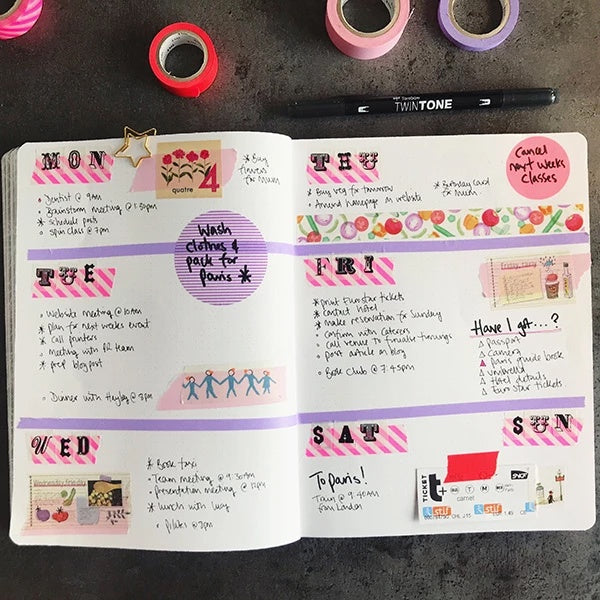 TWINTONE
MON
quatre 4
* Buy
flowers
for Mum
Dentist @ 9am
Brainstorm meeting @ 1:30pm
* Schedule posts
spin class @ 7pm
Wash
clothes &
pack for
Paris *
TUE
Website meeting @ 10am
* plan for next weeks event
* Call printers
meeting with PR team
* prep blog post
Dinner with Hayley @ 8pm
WED
* Book taxi
Team meeting @ 9:30am
Presentation meeting @ 12pm
* lunch with Lucy
Pilates @ 7pm
THU
* Buy veg for tomorrow
Amend homepage on website
* Birthday card
for Mum
Cancel
next weeks
Classes
FRI
* print Eurostar tickets
* contact hotel
* make reservation for Sunday
confirm with caterers
call venue to finalise timings
post article on blog
Book Club @ 7:45pm
Have I got...?
passport
Camera
Paris guide book
Umbrella
Hotel details
Eurostar tickets
SAT
To Paris!
Train @ 9:40am
from London
SUN
TICKET
t+
SNCF
stif
stif